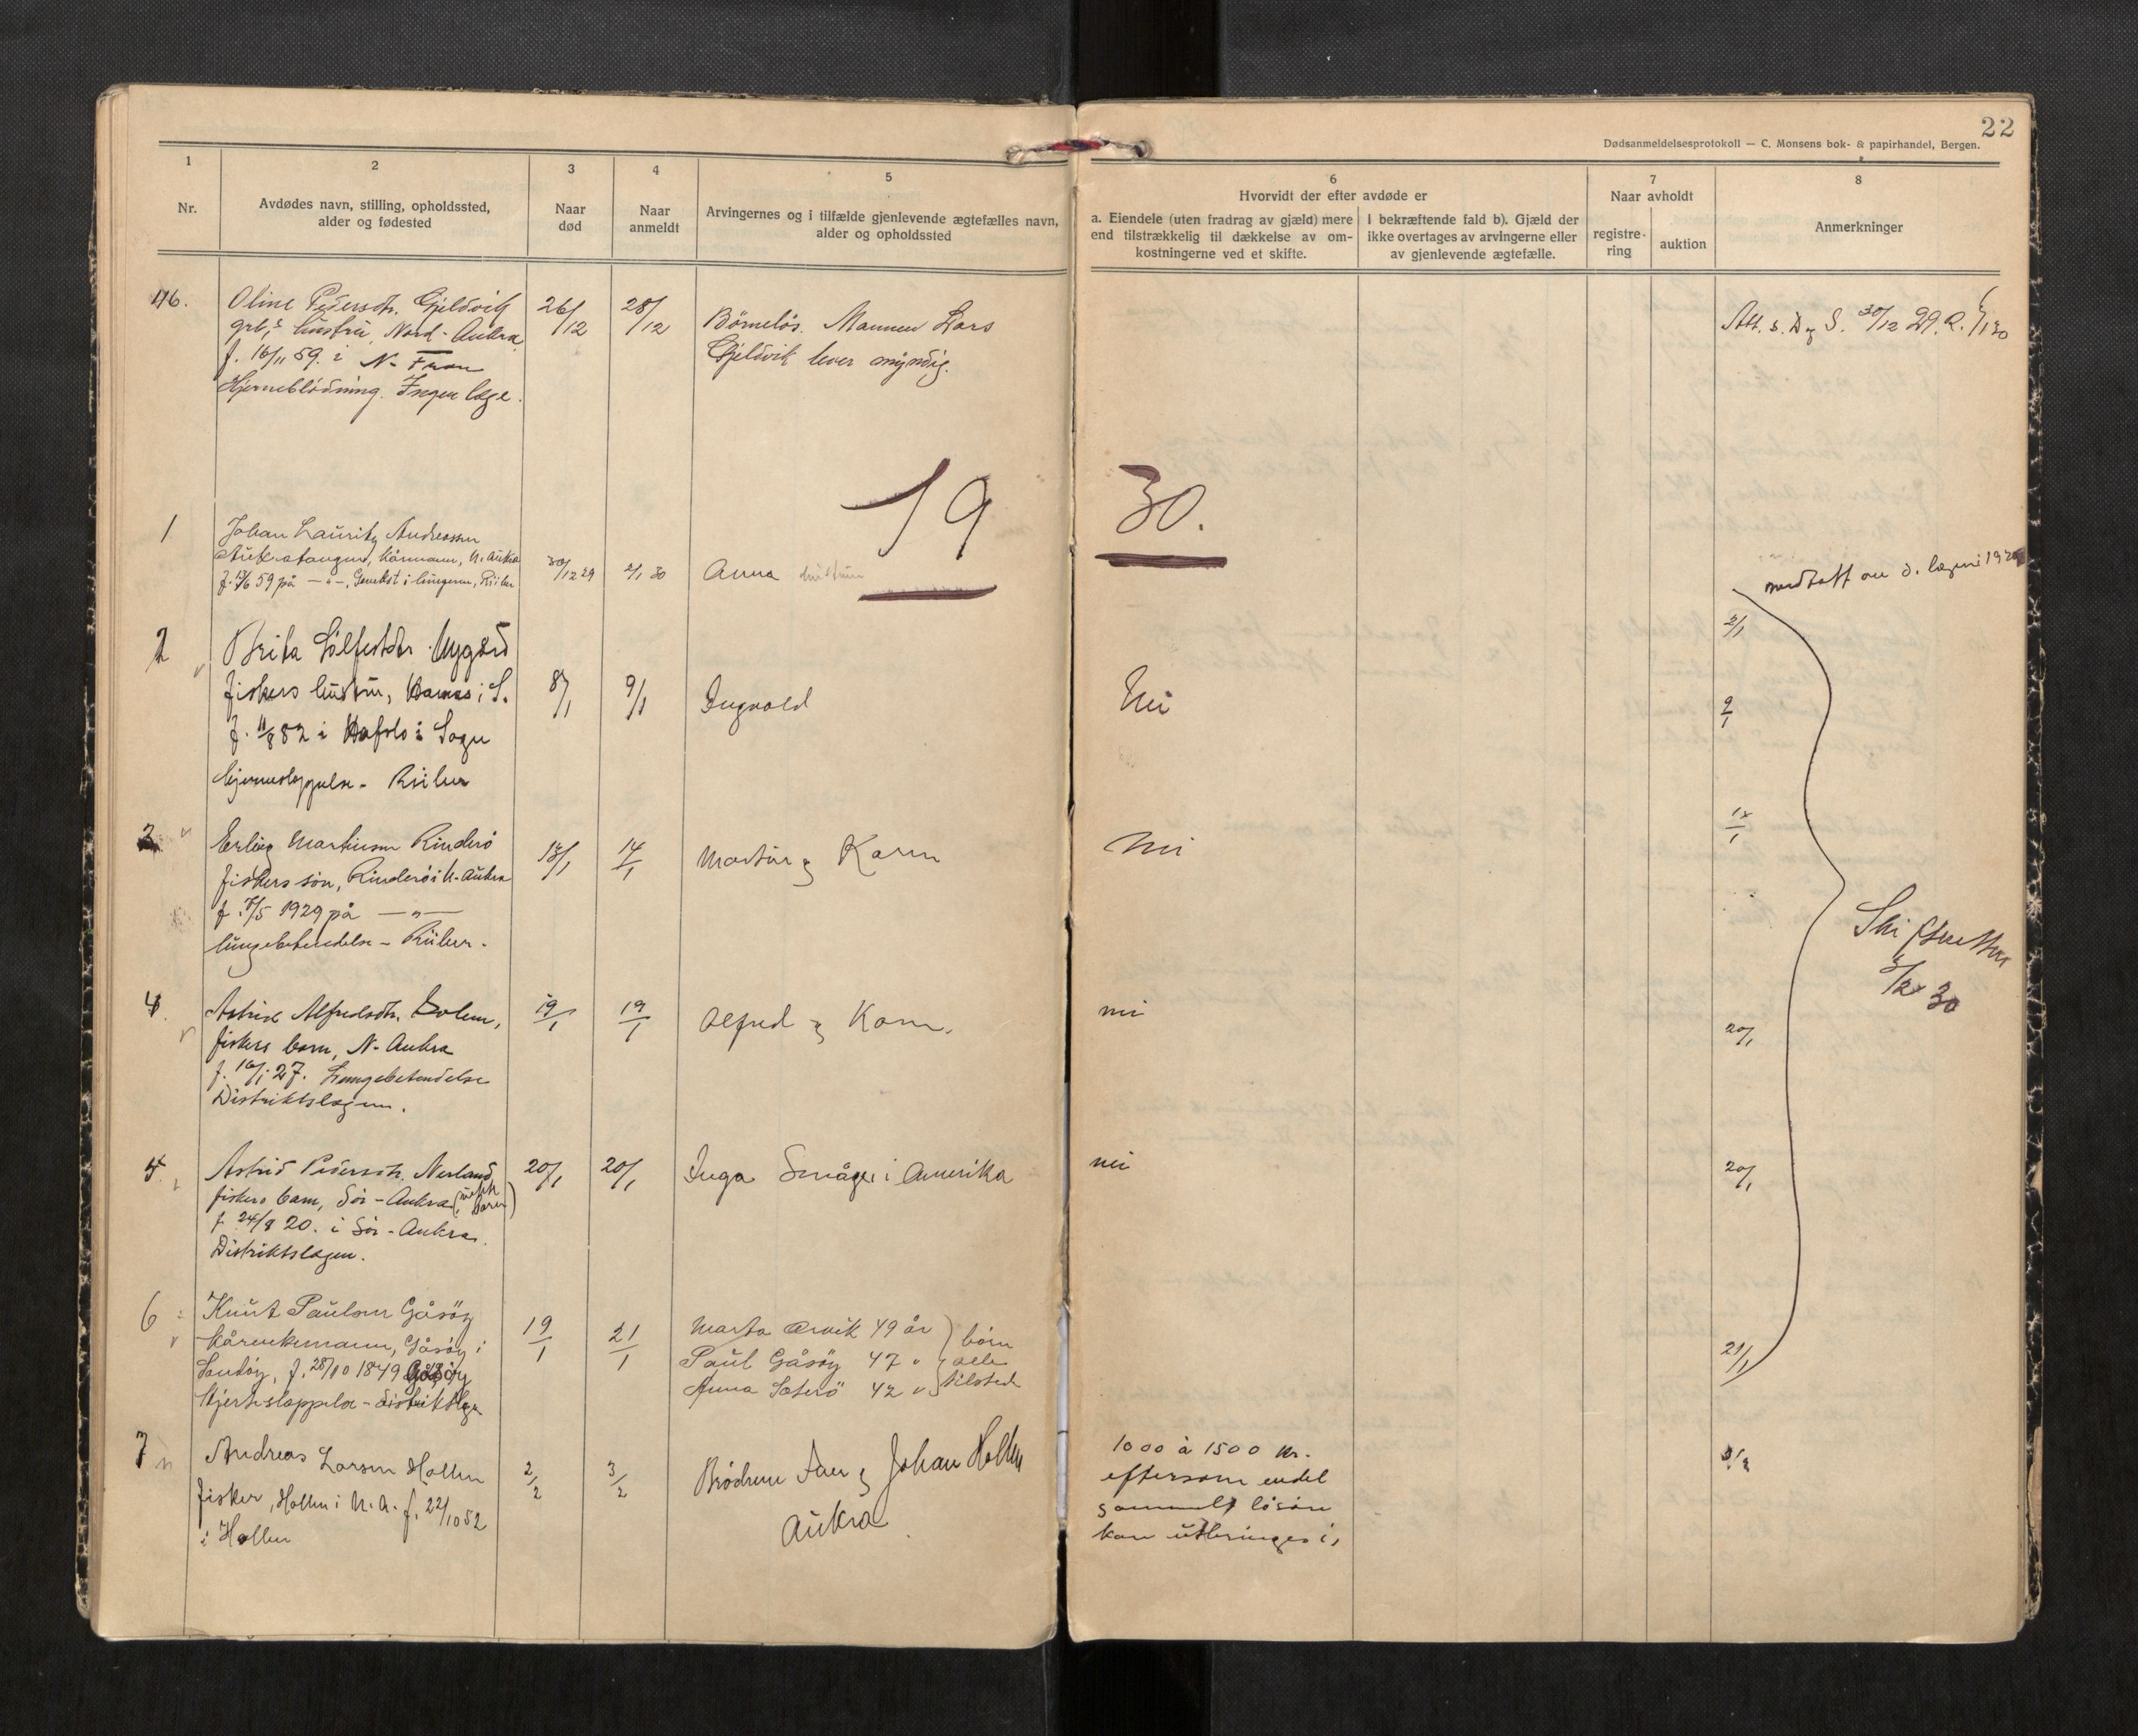 22
Dødsanmeldelsesprotokoll — C. Monsens bok- & papirhandel, Bergen.
1
2
3
4
5
6
7
8
Nr.
Avdødes navn, stilling, opholdssted,
alder og fødested
Naar
død
Naar
anmeldt
Arvingernes og i tilfælde gjenlevende ægtefælles navn,
alder og opholdssted
Hvorvidt der efter avdøde er
a. Eiendele (uten fradrag av gjæld) mere
end tilstrækkelig til dækkelse av om-
kostningerne ved et skifte.
I bekræftende fald b). Gjæld der
ikke overtages av arvingerne eller
av gjenlevende ægtefælle.
Naar avholdt
registre-
ring
auktion
Anmerkninger
46.
Oline Pedersdtr. Gjeldvik
grb.s hustru, Nord-Aukra
f. 16/11 59. i N-
Hjerneblödning. Ingen læge.
26/12
28/12
Börnelös. Mannen Lars
Gjeldvik lever myndig.
Att. s. D og S. 30/12 29.
19
30.
1
Johan Lauritz Andreassen
Aukratangen, kårmann, N. Aukra
f. 59 på — " —,
30/12 29
2/1 30
Anna hustru
1929
2/1
2
Brita Nygård
fiskers hustru, Harnes i S.
f. 11/8 82 i Hafslo i Sogn
8/1
9/1
Ingvald
Nei
9/1
3
Erling Martinsen Rinderö
fiskers sön, Rinderö i N-Aukra
f. 7/5 1929 på — " —
lungebetendelse -
13/1
14/1
Martin og Karen
Nei
4.
Astrid Alfredsdtr.
fiskers barn, N-Aukra
f. 16/1 27. Lungebetendelse
Distriktslægen.
19/1
19/1
Alfred og Karen.
nei
20/1
5.
Astrid Pedersdtr. Nerland
fiskers barn, Sör-Aukra
f 24/8 20. i Sör-Aukra.
Distriktslægen.
20/1
20/1
Inga Småge i Amerika
nei
20/1
6
Knut Paulsen Gåsöy
kårenkemann, Gåsöy i
Sandöy, f. 28/10 1849 Gåsöy
Hjerteslappelse - distriktslægen
19/1
21/1
Marta Orvik 49 år
Paul Gåsöy 47 "
Anna Säterö 42 "
börn
alle
tilsted
21/1
Skifteretten
3/2 30
7
Andreas Larsen Hollen
fisker, Hollen i N.A. f. 22/10 52
i Hollen
2/2
3/2
Brödrene og Johan Hollen
Aukra
1000 à 1500 kr.
eftersom endel
lösöre
kan utbringes i,
3/2